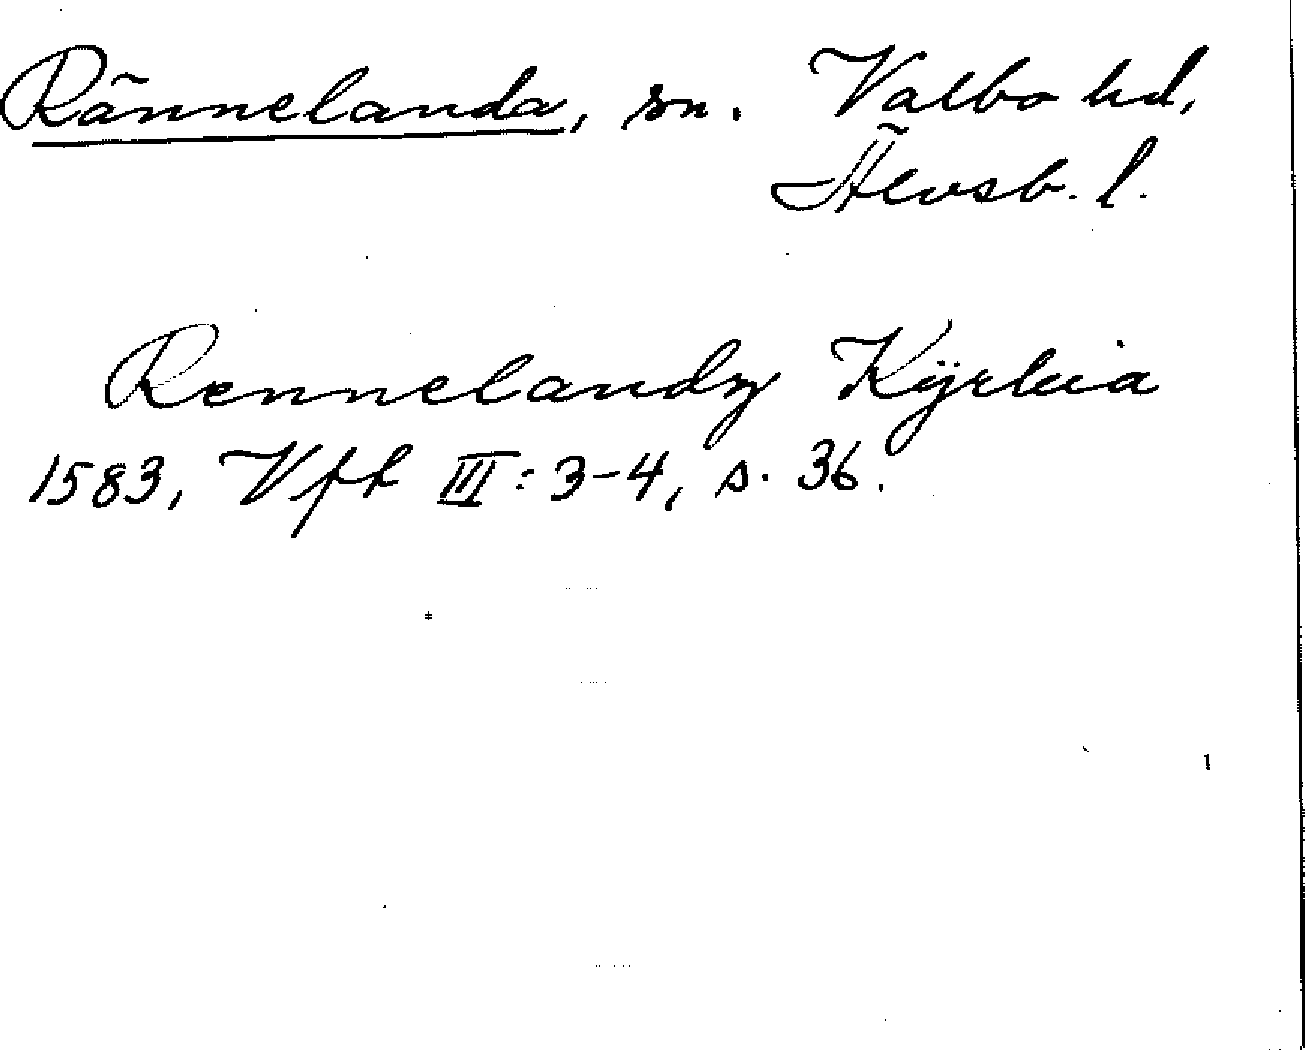 Rännelanda, sn. Valbo hd,
Älvsb. l.
Rennelandz Kÿrkia
1583, Vft III: 3-4, s. 36.